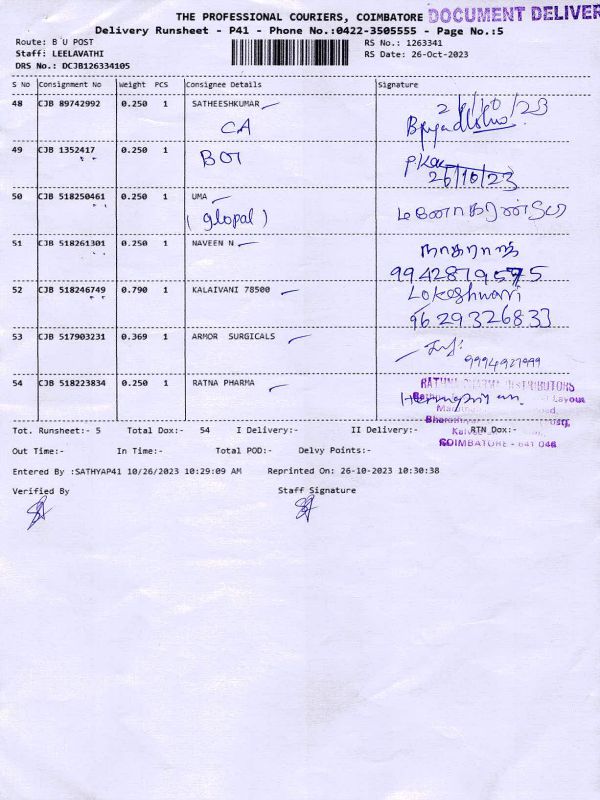 THE PROFESSIONAL COURIERS, COIMBATORE DOCUMENT DELIVER
Delivery Runsheet - P41 - Phone No.:0422-3505555 - Page No.:5
Route: B U POST RS No.: 1263341
Staff: LEELAVATHI RS Date: 26-Oct-2023
DRS No.: DCJB126334105
S No Consignment No Weight PCS Consignee Details Signature
48 CJB 89742992 0.250 1 SATHEESHKUMAR
CA
49 CJB 1352417 0.250 1 BOI
26/10/23
50 CJB 518250461 0.250 1 UMA
(glopal)
51 CJB 518261301 0.250 1 NAVEEN N நாகராஜ்
52 CJB 518246749 0.790 1 KALAIVANI 78500 Lokeshwari
96 29326833
53 CJB 517903231 0.369 1 ARMOR SURGICALS
9994927999
54 CJB 518223834 0.250 1 RATNA PHARMA
COIMBATORE - 641 046
Tot. Runsheet:- 5 Total Dox:- 54 I Delivery:- II Delivery:- RTN Dox:-
Out Time:- In Time:- Total POD:- Delvy Points:-
Entered By :SATHYAP41 10/26/2023 10:29:09 AM Reprinted On: 26-10-2023 10:30:38
Verified By Staff Signature